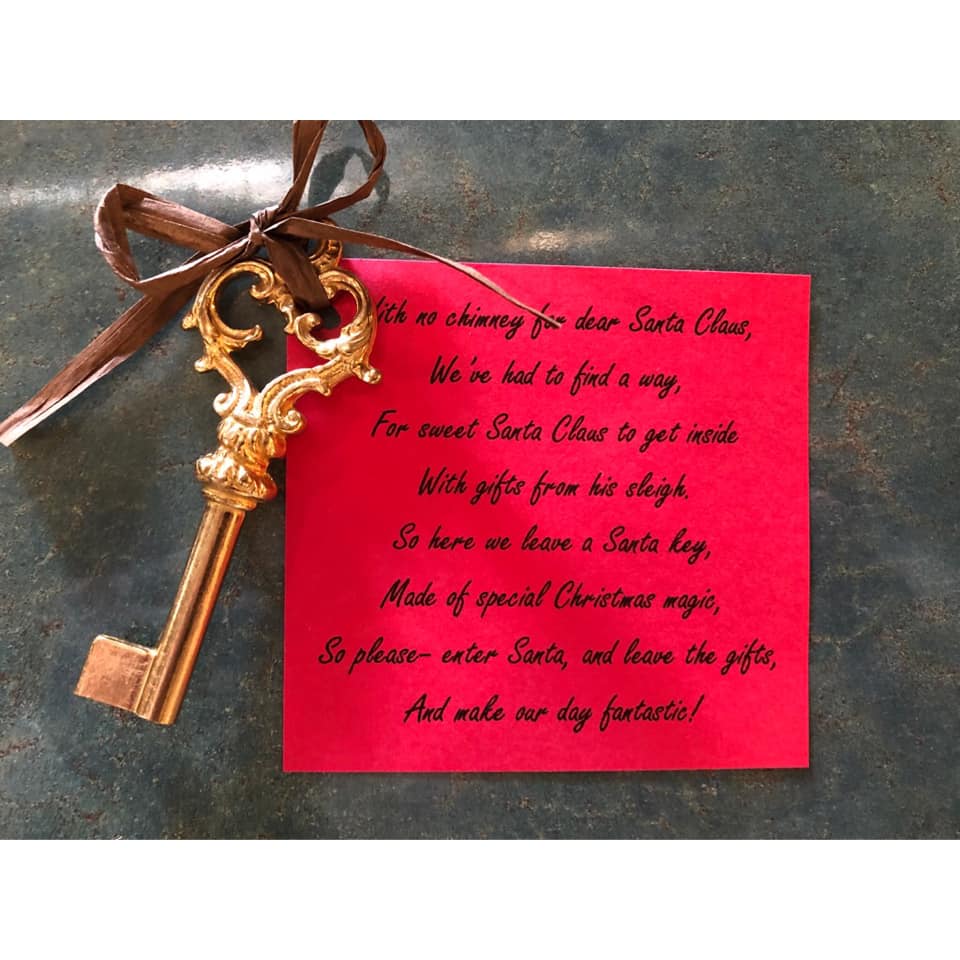 With no chimney for dear Santa Claus,
We've had to find a way,
For sweet Santa Claus to get inside
With gifts from his sleigh.
So here we leave a Santa key,
Made of special Christmas magic,
So please- enter Santa, and leave the gifts,
And make our day fantastic!